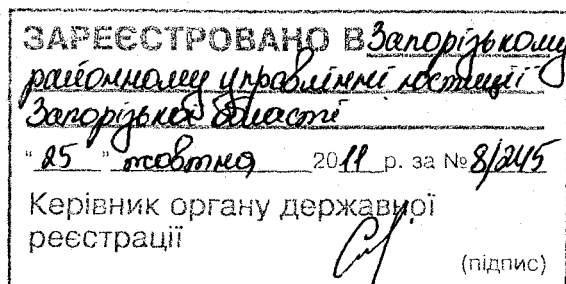 ЗАРЕЄСТРОВАНО В Запорізькому
районному управлінні юстиції
Запорізької області
"25" жовтня 2011 р. за № 8/245
Керівник органу державної
реєстрації
(підпис)